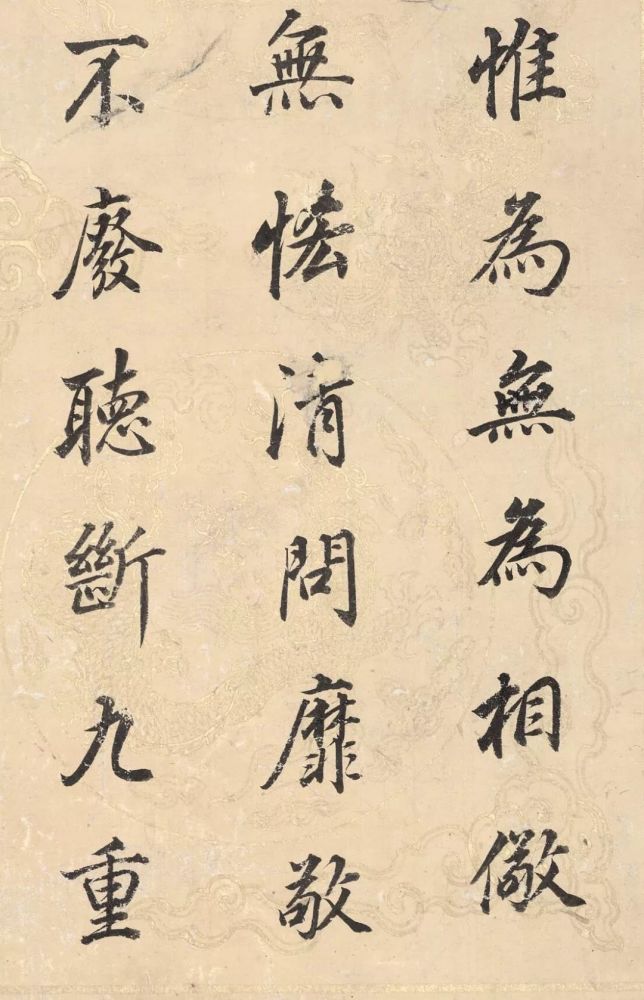 惟為無為相儆
無清問靡敬
不廢聽斷九重